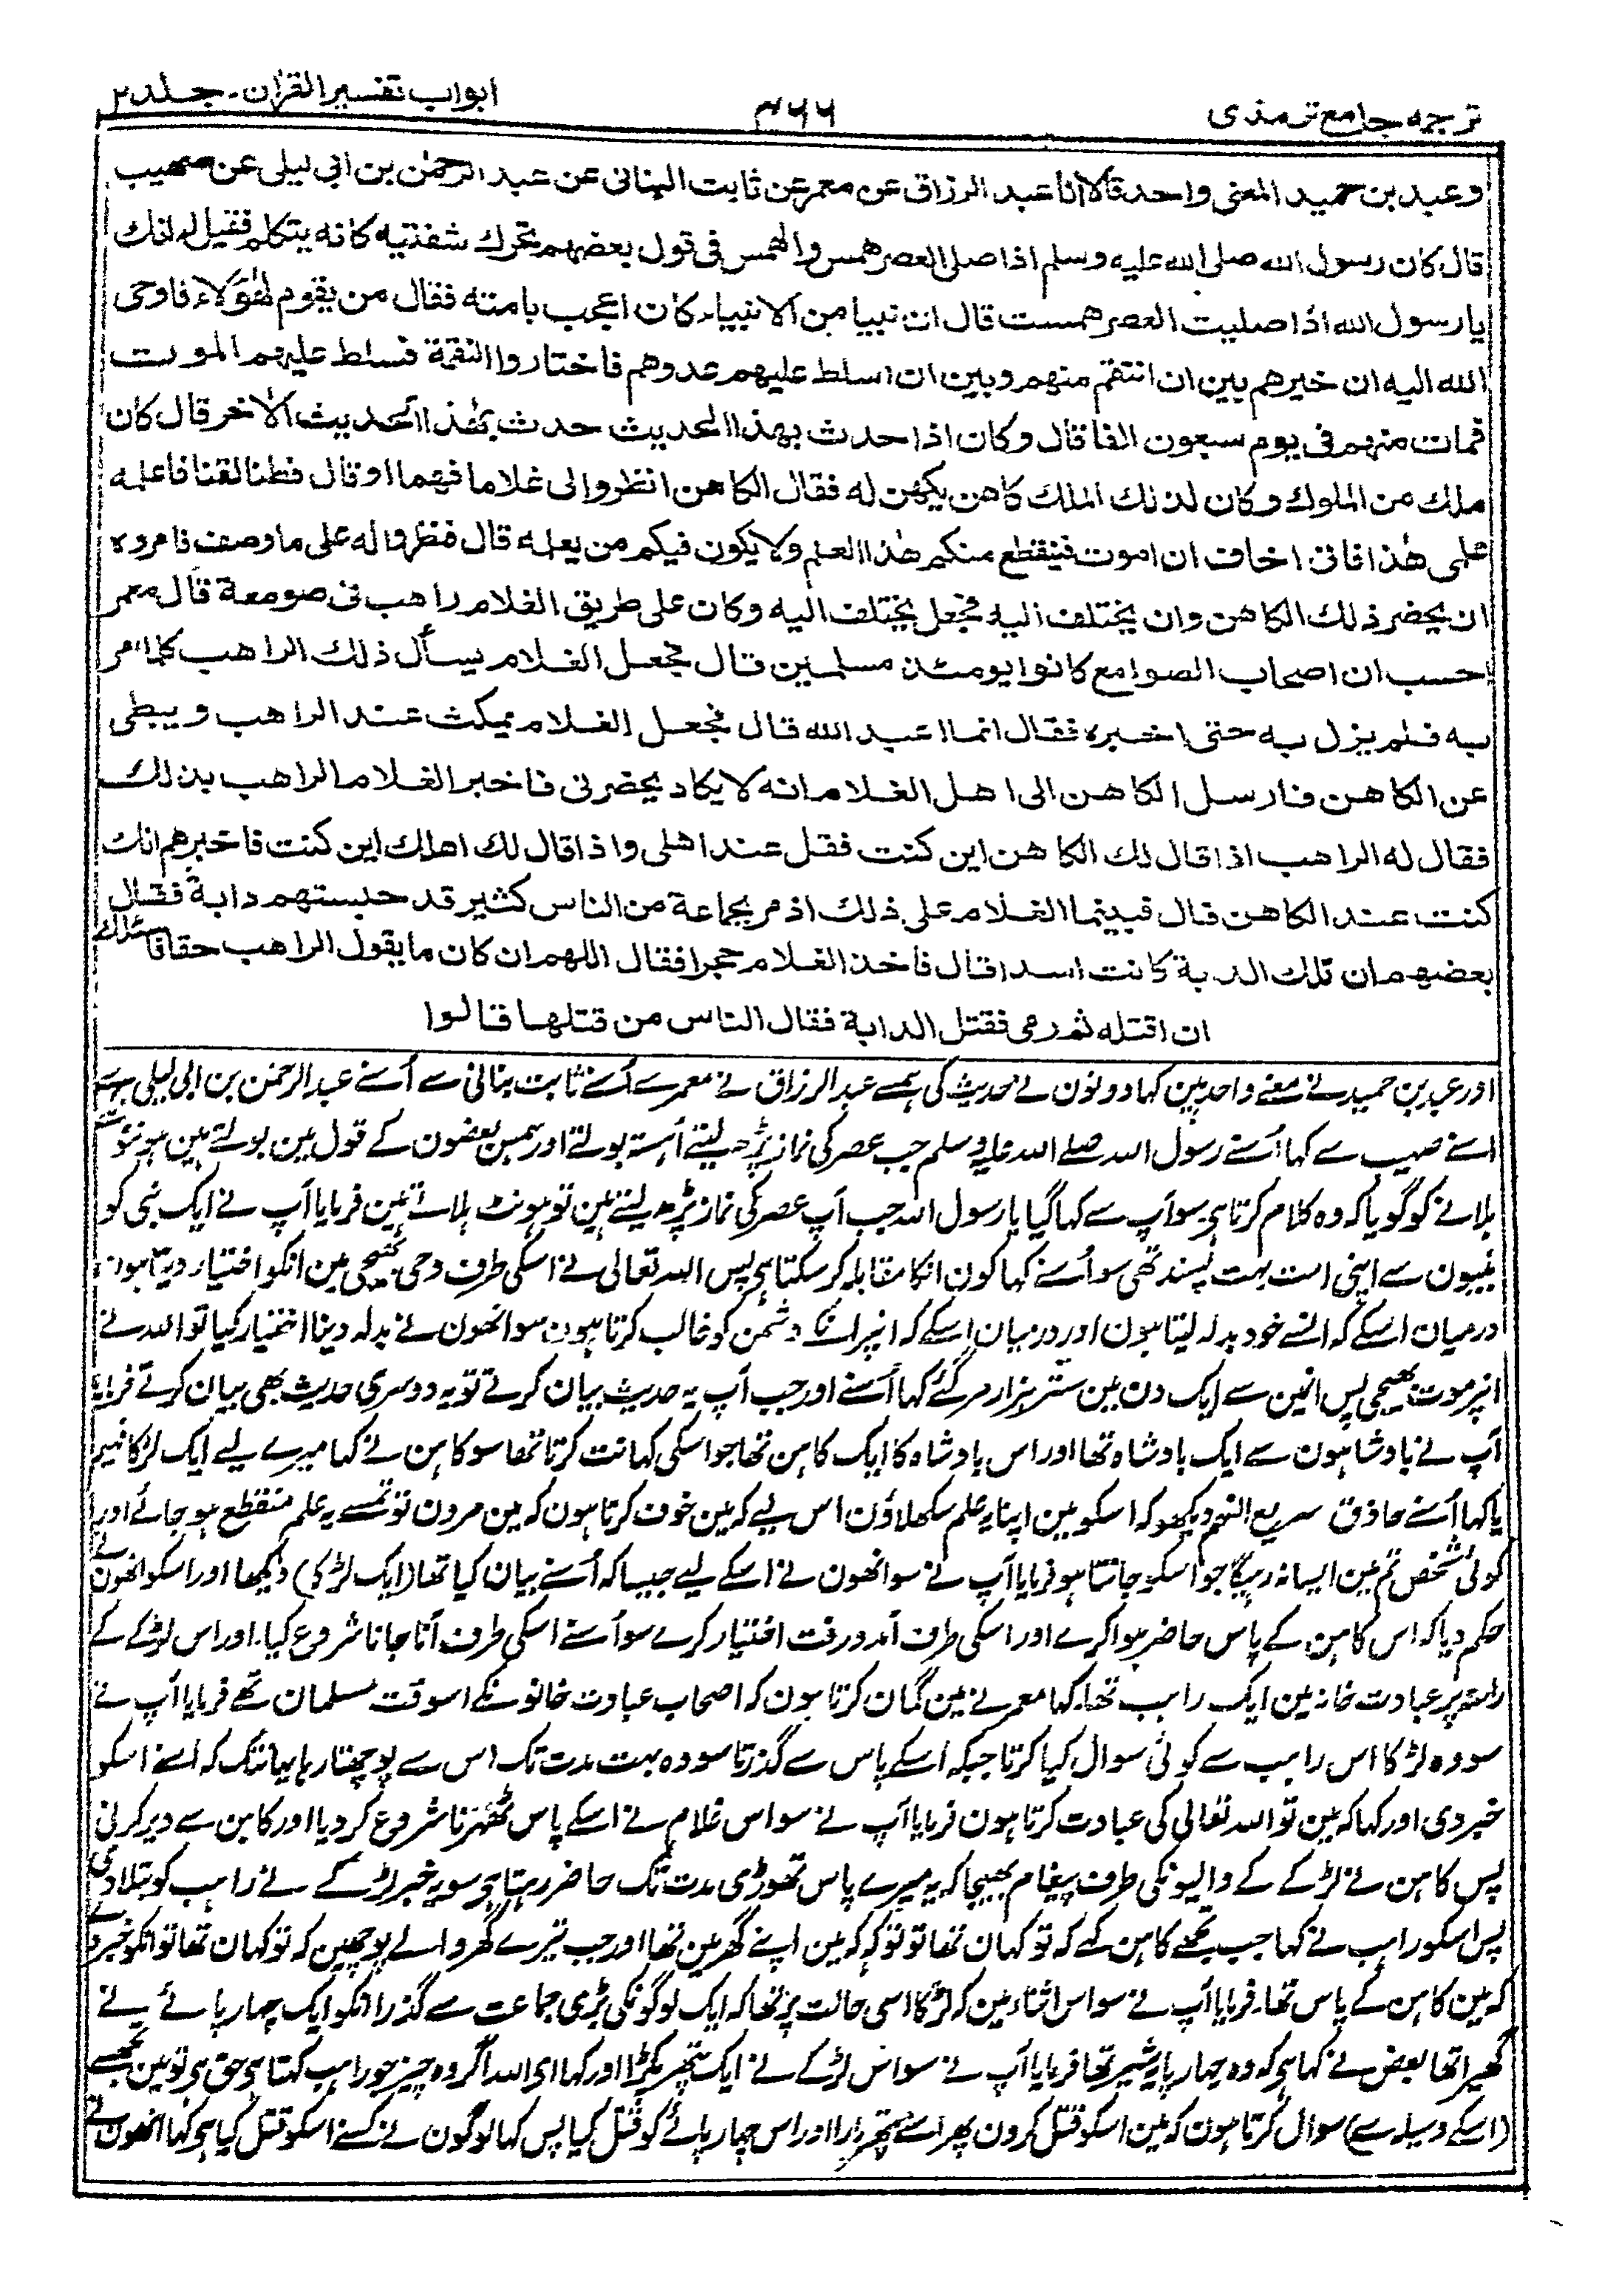 ترجمہ جامع ترمذی
۴۶۶
ابواب تفسیر القرآن۔ جلد ۲
وعبد بن حميد المعنى واحد قالا انا عبد الرزاق عن معمر عن ثابت البنانى عن عبد الرحمٰن بن ابى ليلى عن صهيب
قال كان رسول الله صلى الله عليه وسلم اذا صلى العصر همس والهمس فى قول بعضهم تحرك شفتيه كانه يتكلم فقيل له انك
يا رسول الله اذا صليت العصر همست قال ان نبيا من الانبياء كان اعجب بامته فقال من يقوم لهٰؤلاء فاوحى
الله اليه ان خيرهم بين ان انتقم منهم وبين ان اسلط عليهم عدوهم فاختاروا النقمة فسلط عليهم الموت
فمات منهم فى يوم سبعون الفا قال وكان اذا حدث بهذا الحديث حدث بهذا الحديث الاٰخر قال كان
ملك من الملوك وكان لذلك الملك كاهن يكهن له فقال الكاهن انظروا لى غلاما فهما او قال فطنا لقنا فاعلمه
علمى هٰذا فانى اخاف ان اموت فينقطع منكم هٰذا العلم ولا يكون فيكم من يعلمه قال فنظروا له على ما وصف فامروه
ان يحضر ذلك الكاهن وان يختلف اليه فجعل يختلف اليه وكان على طريق الغلام راهب فى صومعة قال معمر
احسب ان اصحاب الصوامع كانوا يومئذ مسلمين قال فجعل الغلام يسأل ذلك الراهب كلما مر
به فلم يزل به حتى اخبره فقال انما اعبد الله قال فجعل الغلام يمكث عند الراهب ويبطى
عن الكاهن فارسل الكاهن الى اهل الغلام انه لا يكاد يحضرنى فاخبر الغلام الراهب بذلك
فقال له الراهب اذا قال لك الكاهن اين كنت فقل عند اهلى واذا قال لك اهلك اين كنت فاخبرهم انك
كنت عند الكاهن قال فبينما الغلام على ذلك اذ مر بجماعة من الناس كثير قد حبستهم دابة فقال
بعضهم ان تلك الدابة كانت اسدا قال فاخذ الغلام حجرا فقال اللهم ان كان ما يقول الراهب حقا فاسئلك
ان اقتله ثم رمى فقتل الدابة فقال الناس من قتلها قالوا
اور عبد بن حمید نے معنے واحد ہین کہا دونون نے حدیث کی ہمسے عبد الرزاق نے معمر سے اُسنے ثابت بنانی سے اُسنے عبد الرحمٰن بن ابی لیلی سے
اسنے صہیب سے کہا اُسنے رسول اللہ صلے اللہ علیہ وسلم جب عصر کی نماز پڑھ لیتے آہستہ بولتے اور ہمس بعضون کے قول مین بولتے ہین ہونٹونکے
ہلانے کو گویا کہ وہ کلام کرتا ہی سو آپ سے کہا گیا یا رسول اللہ جب آپ عصر کی نماز پڑھ لیتے ہین تو ہونٹ ہلاتے ہین فرمایا آپ نے ایک نبی کو
نبیون سے اپنی امت بہت پسند تھی سو اُسنے کہا کون انکا مقابلہ کر سکتا ہی پس اللہ تعالی نے اسکی طرف وحی بھیجی مین انکو اختیار دیتا ہون
درمیان اسکے کہ انسے خود بدلہ لیتا ہون اور درمیان اسکے کہ انپر انکے دشمن کو غالب کرتا ہون سو انھون نے بدلہ دینا اختیار کیا تو اللہ نے
انپر موت بھیجی پس انہین سے ایک دن مین ستر ہزار مر گئے کہا اُسنے اور جب آپ یہ حدیث بیان کرتے تو یہ دوسری حدیث بھی بیان کرتے فرمایا
آپ نے بادشاہون سے ایک بادشاہ تھا اور اس بادشاہ کا ایک کاہن تھا جو اسکی کہانت کرتا تھا سو کاہن نے کہا میرے لیے ایک لڑکا فہیم
یا کہا اُسنے حاذق سریع الفہم دیکھو کہ اسکو مین اپنا یہ علم سکھلاؤن اس لیے کہ مین خوف کرتا ہون کہ مین مرون تو تمسے یہ علم منقطع ہو جائے اور
کوئی شخص تم مین ایسا نہ رہیگا جو اسکو جانتا ہو فرمایا آپ نے سو انھون نے اسکے لیے جیسا کہ اُسنے بیان کیا تھا (ایک لڑکا) دیکھا اور اسکو انھون نے
حکم دیا کہ اس کاہن کے پاس حاضر ہوا کرے اور اسکی طرف آمد و رفت اختیار کرے سو اُسنے اسکی طرف آنا جانا شروع کیا۔ اور اس لڑکے کے
راستہ پر عبادت خانہ مین ایک راہب تھا۔ کہا معمر نے مین گمان کرتا ہون کہ اصحاب عبادت خانونکے اسوقت مسلمان تھے فرمایا آپ نے
سو وہ لڑکا اس راہب سے کوئی سوال کیا کرتا جبکہ اسکے پاس سے گذرتا سو وہ بہت مدت تک اس سے پوچھتا رہا یہانتک کہ اسنے اسکو
خبر دی اور کہا کہ مین تو اللہ تعالی کی عبادت کرتا ہون فرمایا آپ نے سو اس غلام نے اسکے پاس ٹھہرنا شروع کر دیا اور کاہن سے دیر کرنی
پس کاہن نے لڑکے کے والیونکی طرف پیغام بھیجا کہ یہ میرے پاس تھوڑی مدت تک حاضر رہتا ہی سو یہ خبر لڑکے نے راہب کو بتلا دی
پس اسکو راہب نے کہا جب تجھے کاہن کہے کہ تو کہان تھا تو تو کہہ کہ مین اپنے گھر مین تھا اور جب تیرے گھر والے پوچھین کہ تو کہان تھا تو انکو خبر دے
کہ مین کاہن کے پاس تھا۔ فرمایا آپ نے سو اس اثناء مین کہ لڑکا اسی حالت پر تھا کہ ایک لوگونکی بڑی جماعت سے گذرا انکو ایک چہار پائے نے
گھیرا تھا بعض نے کہا ہی کہ وہ چہار پایہ شیر تھا فرمایا آپ نے سو اس لڑکے نے ایک پتھر پکڑا اور کہا ای اللہ اگر وہ چیز جو راہب کہتا ہی حق ہی تو مین تجھسے
(اسکے وسیلہ سے) سوال کرتا ہون کہ مین اسکو قتل کرون پھر اسنے پتھر مارا اور اس چہار پائے کو قتل کیا پس کہا لوگون نے کسنے اسکو قتل کیا ہی کہا انھون نے